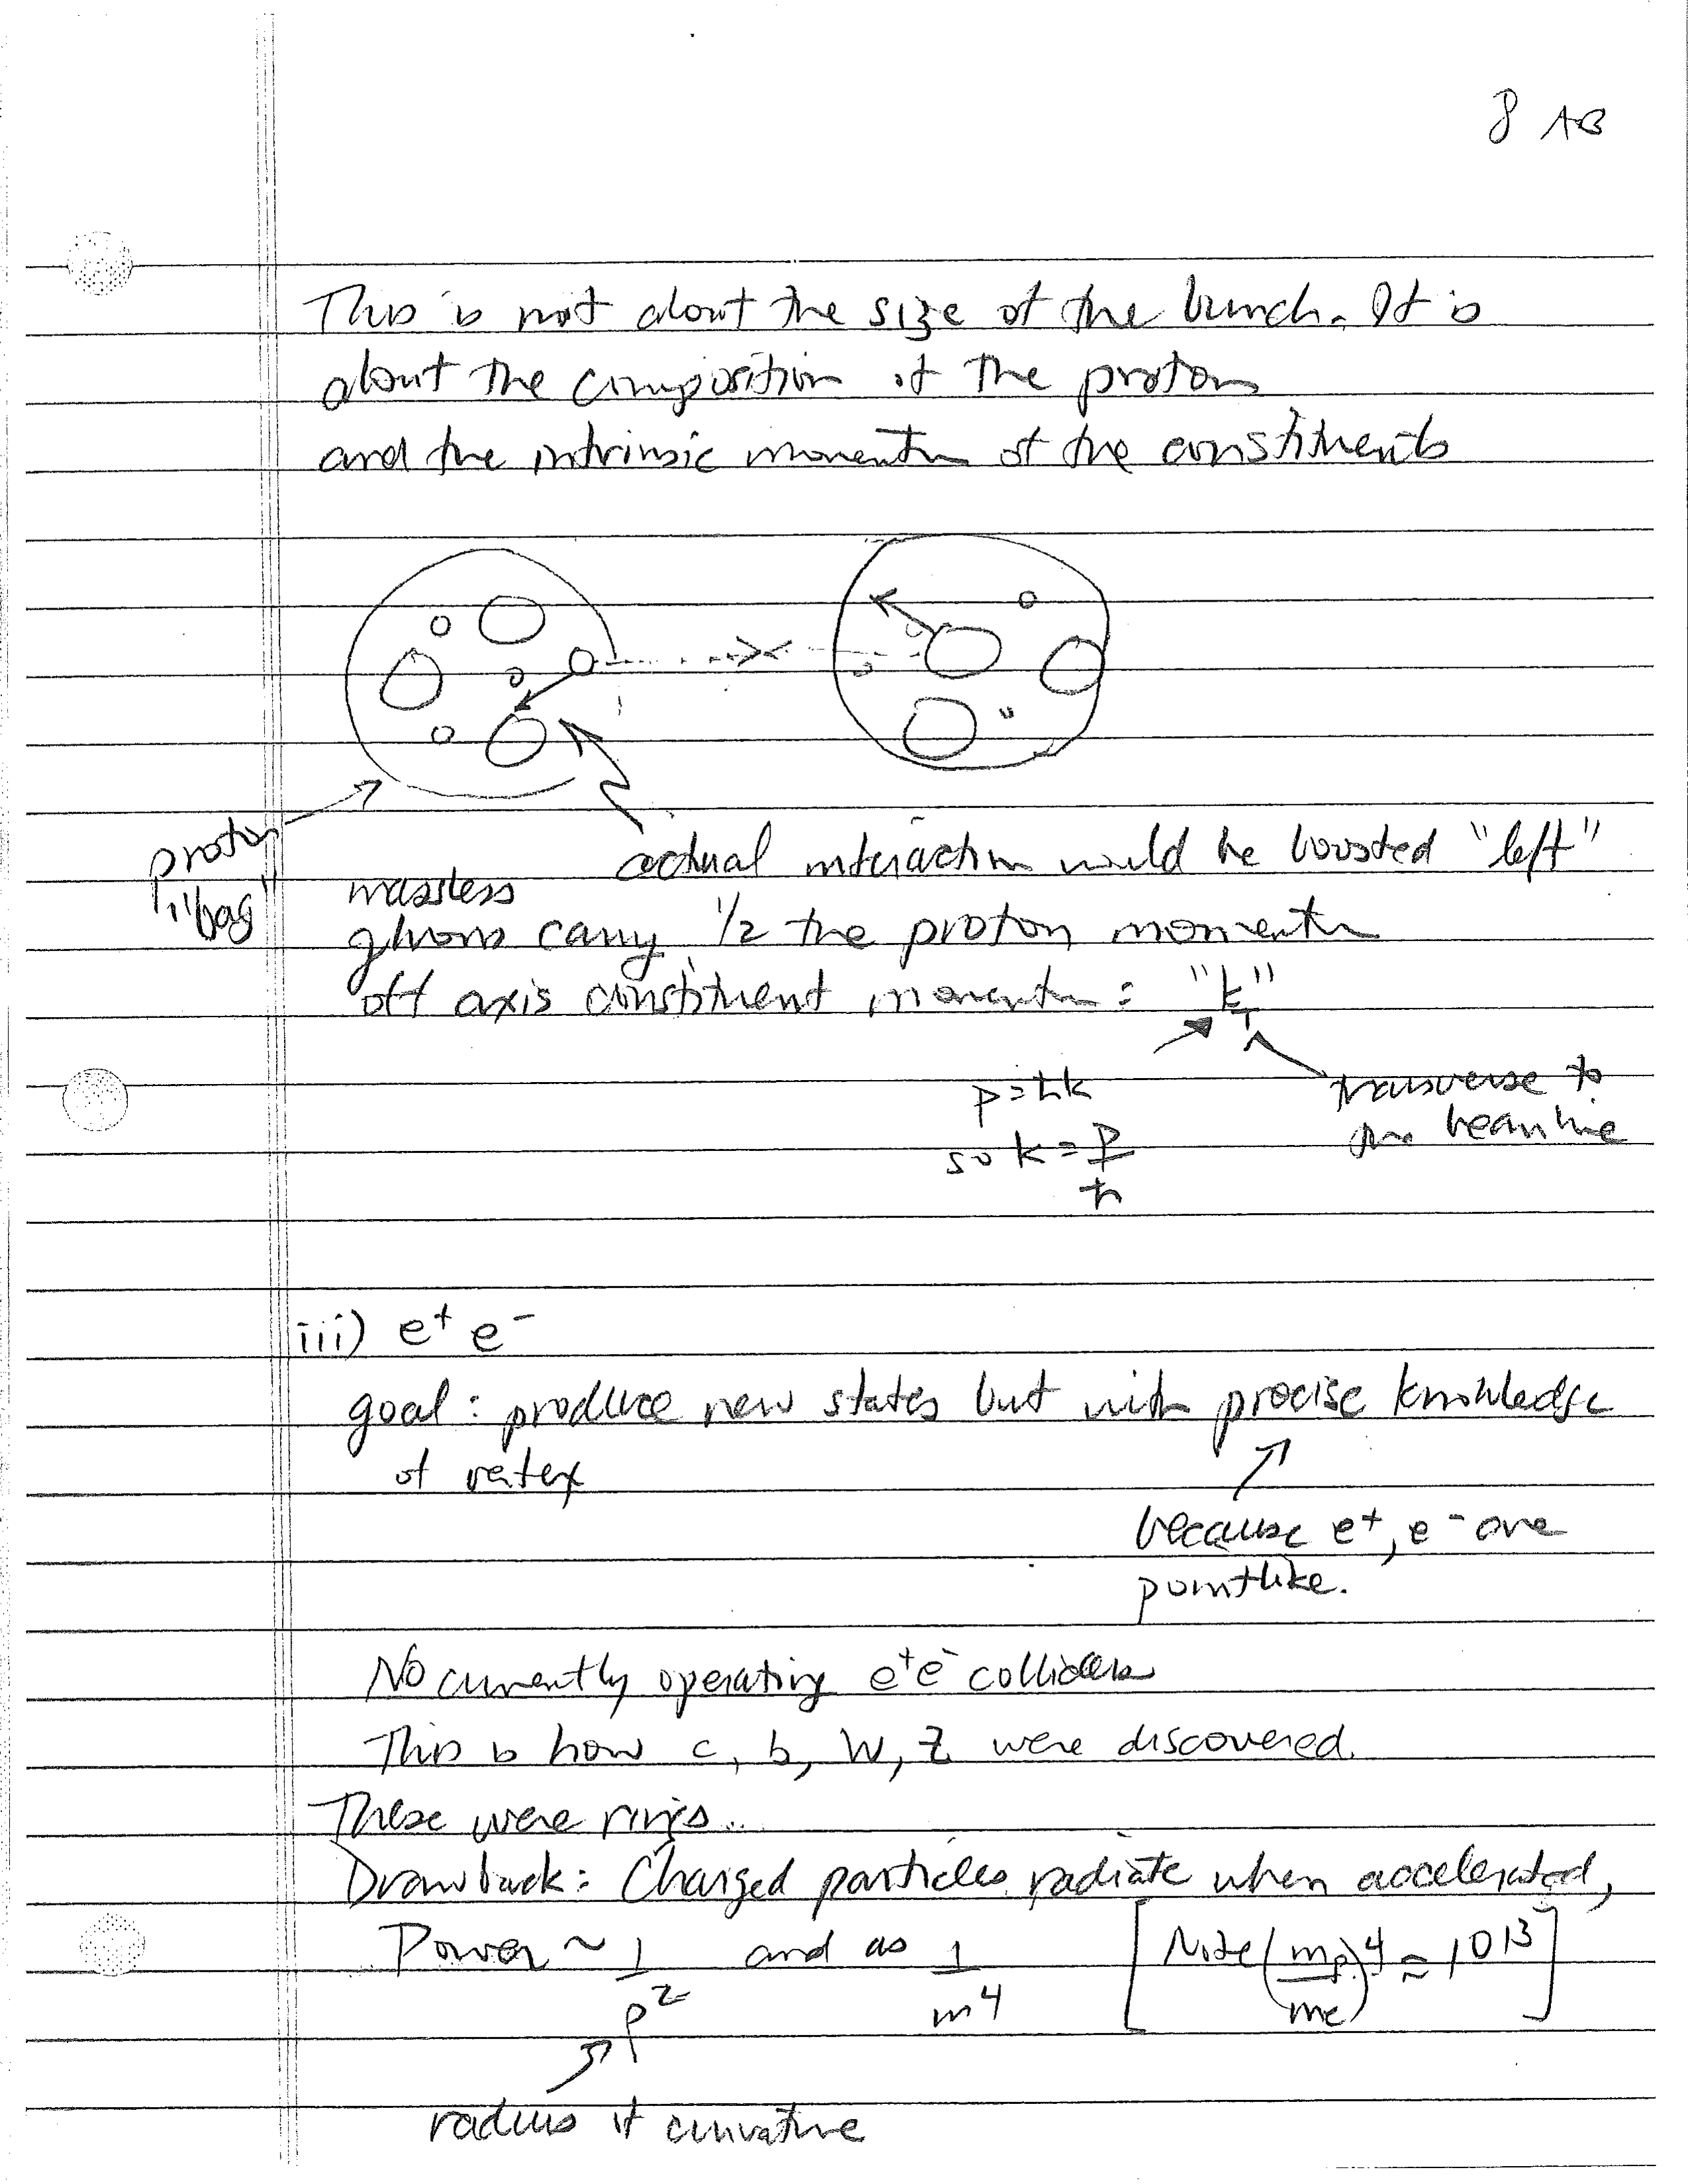 8 AB
This is not about the size of the bunch. It is
about the composition of the proton
and the intrinsic momentum of the constituents
proton
"bag"
actual interaction would be boosted "left"
massless
gluons carry 1/2 the proton momentum
off axis constituent momentum: "k_T"
p=ħk
so k = p/ħ
transverse to
the beamline
iii) e⁺ e⁻
goal: produce new states but with precise knowledge
of vertex
because e⁺, e⁻ are
pointlike.
No currently operating e⁺e⁻ colliders
This is how c, b, W, Z were discovered.
These were rings...
Drawback: Charged particles radiate when accelerated,
Power ~ 1/ρ² and as 1/m⁴ [Note (mp/me)⁴ ≈ 10¹³]
radius of curvature